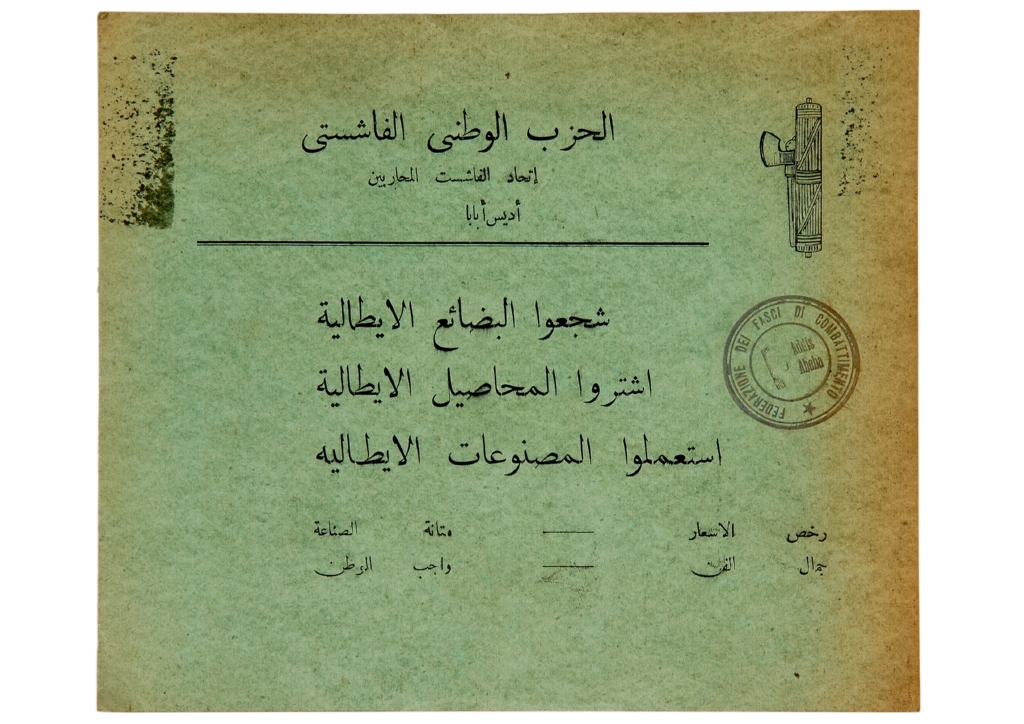 الحزب الوطنى الفاشستى
إتحاد الفاشست المحاربين
أديس أبابا
شجعوا البضائع الايطالية
اشتروا المحاصيل الايطالية
استعملوا المصنوعات الايطاليه
رخص الاسعار — متانة الصناعة
جمال الفن — واجب الوطن
FEDERAZIONE DEI FASCI DI COMBATTIMENTO
Addis Abeba